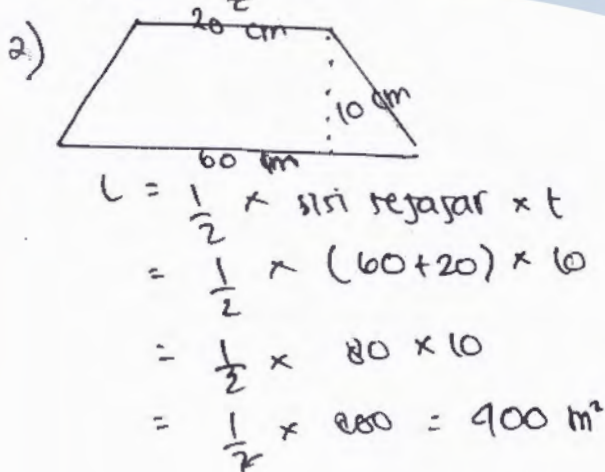 2)
20 cm
10 cm
60 cm
L = 1/2 × sisi sejajar × t
= 1/2 × (60+20) × 10
= 1/2 × 80 × 10
= 1/2 × 800 = 400 m²